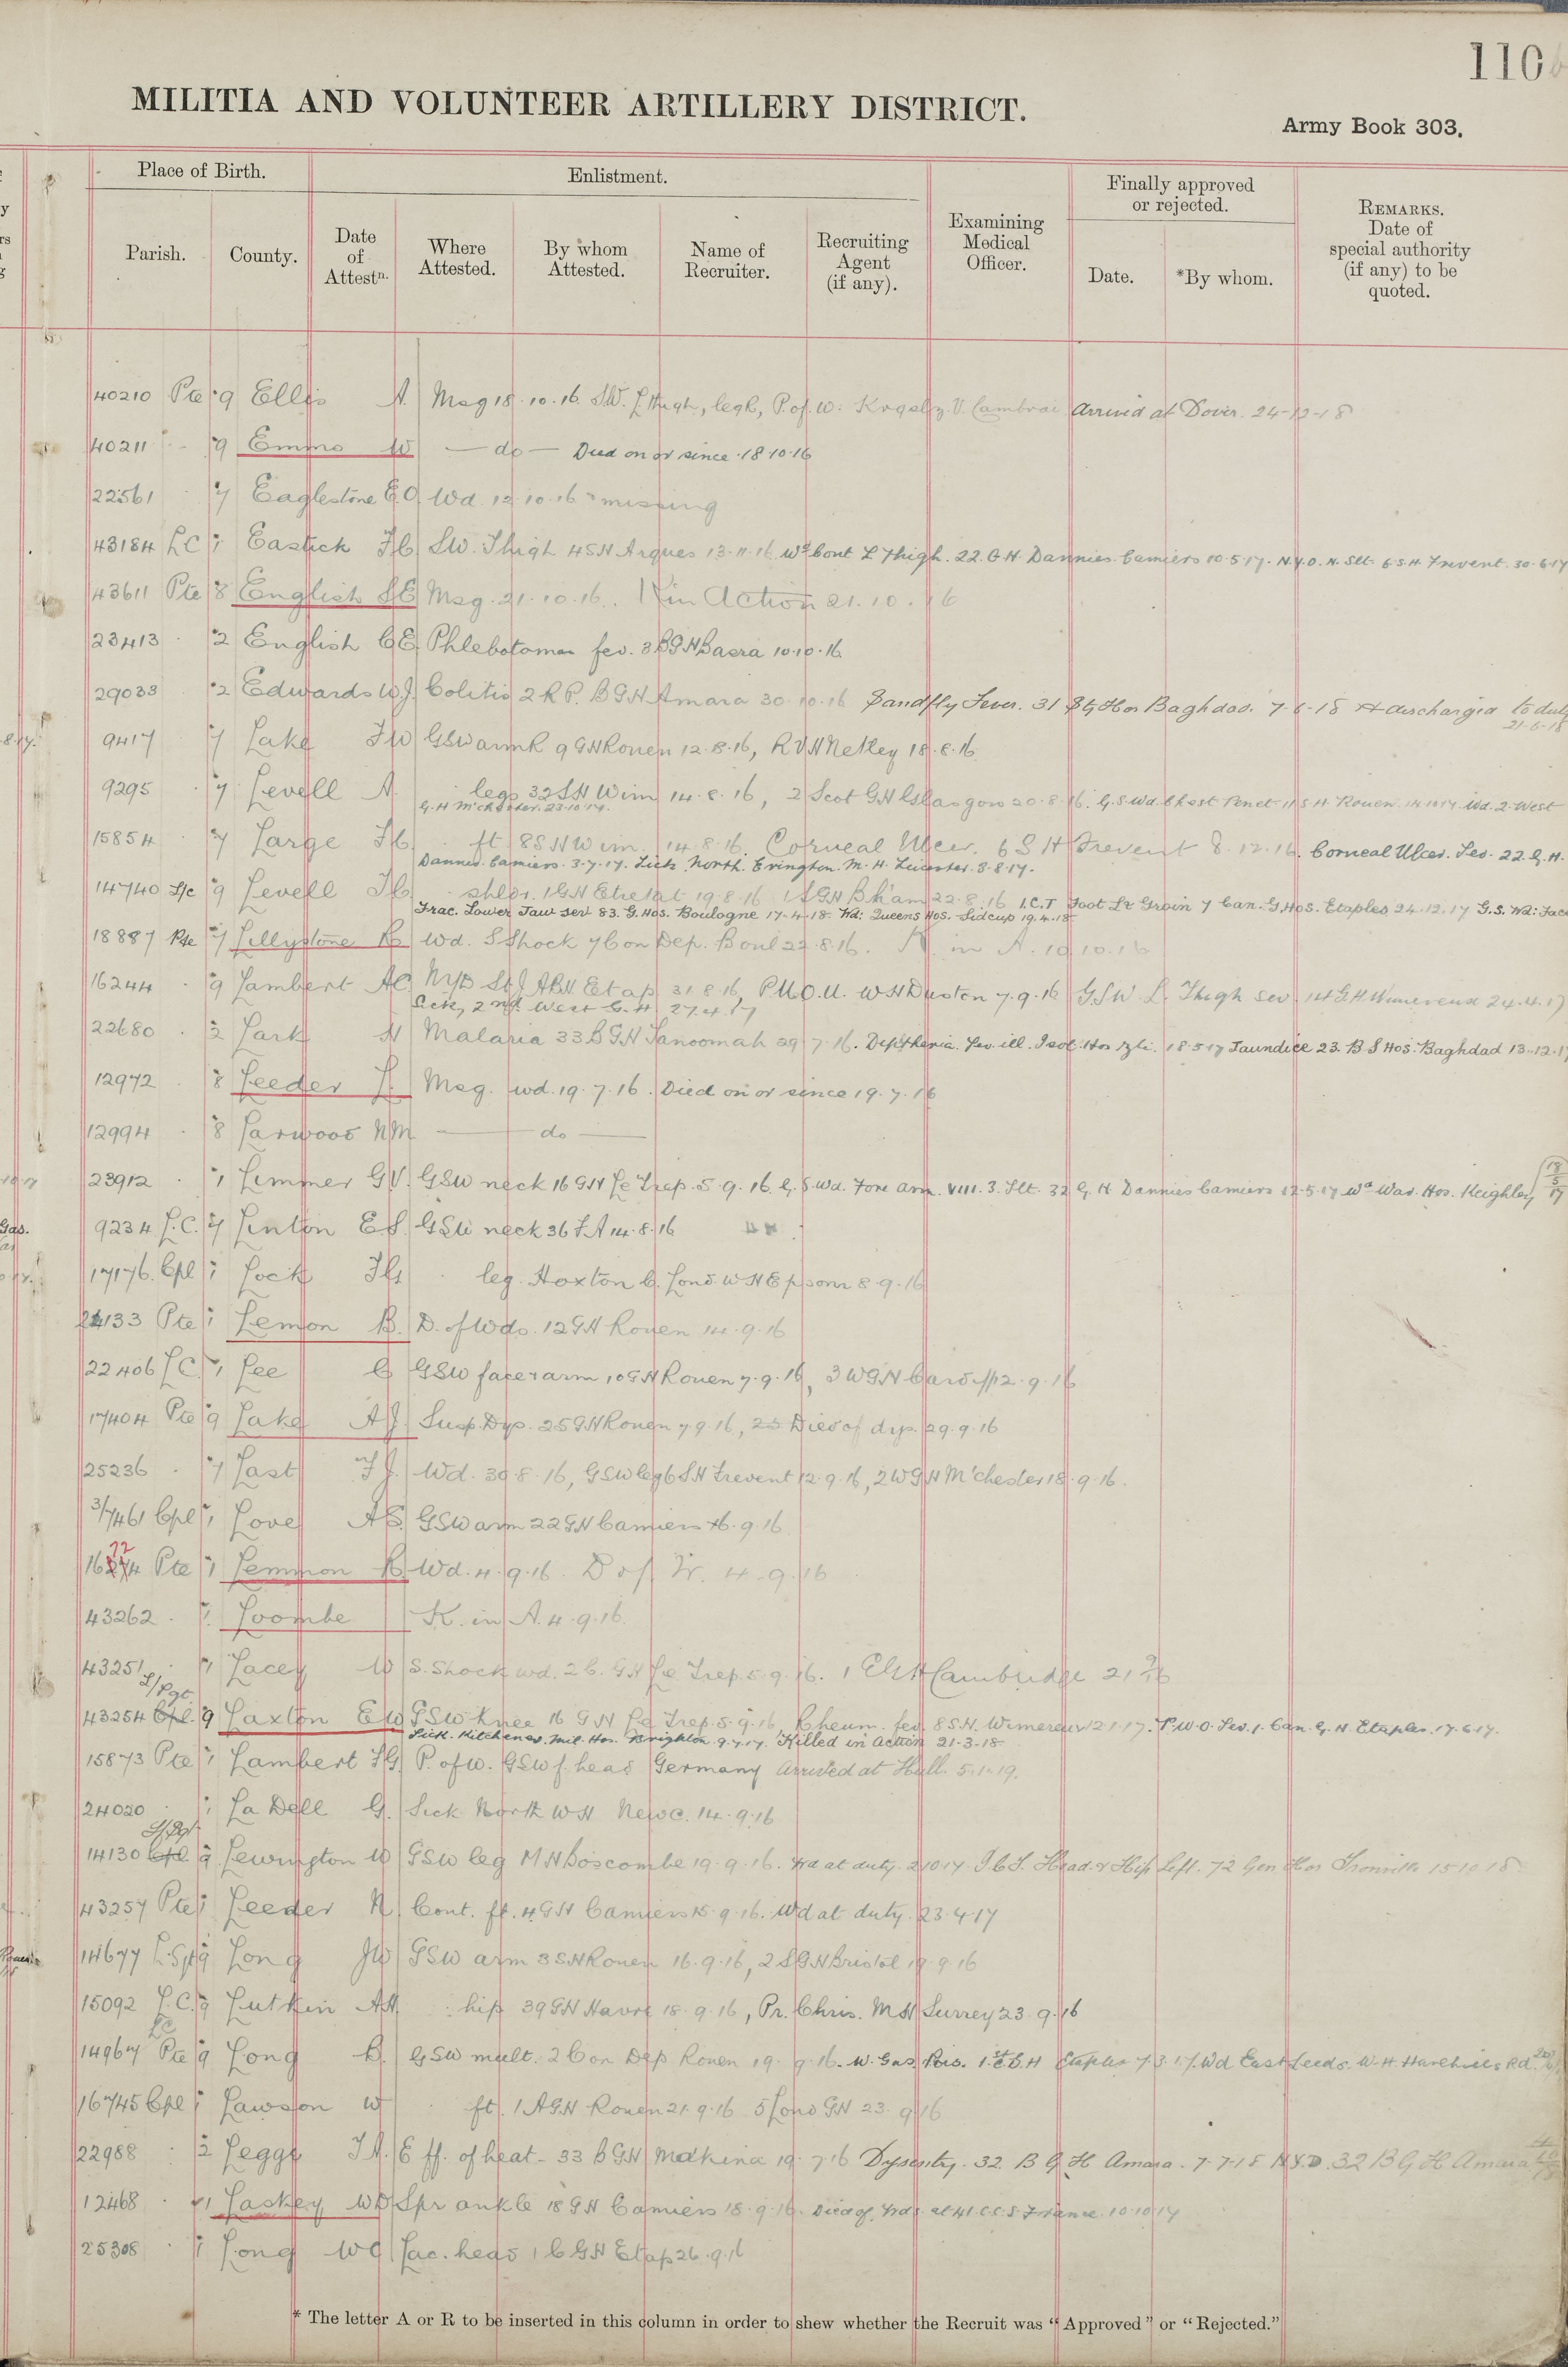 110
MILITIA AND VOLUNTEER ARTILLERY DISTRICT.
Army Book 303.
Place of Birth.
Enlistment.
Finally approved or rejected.
Parish.
County.
Date of Attestn.
Where Attested.
By whom Attested.
Name of Recruiter.
Recruiting Agent (if any).
Examining Medical Officer.
Date.
*By whom.
REMARKS. Date of special authority (if any) to be quoted.
40210 Pte 9 Ellis A. Msg 18.10.16. P. of W. Cambrai Arrived at Dover. 24-12-18
40211 9 Emms W — do — Died on or since 18.10.16
22561 7 Eaglestone E.O. Wd. 12.10.16 missing
43184 LC 7 Eastick SW. Thigh 4SH Arques 13.11.16 Wd Cont L Thigh. 22. G.H. Dannies Camiers 10.5.17. N.Y.D. N. Slt 6.S.H. Frevent. 30.6.17
43611 Pte 8 English Msg. 21.10.16. K in Action 21.10.16
23413 2 English C E Phlebotoman fev. 3 BGH Basra 10.10.16
29033 2 Edwards W.J. Colitis 2 R.P. BGH Amara 30.10.16 Sandfly Fever. 31 Hos Baghdad. 7-6-18 discharged to duty
21-6-18
9417 7 Lake F W GSW arm R 9 GH Rouen 12.8.16, RVH Netley 18.8.16
9295 7 Levell A legs 32 SH Wim 14.8.16, 2 Scot GH Glasgow 20.8.16. G.S.Wd Chest Penet 11 S.H. Rouen. Wd. 2. West
G.H M'chester. 23.10.17.
15854 7 Large ft 8SH Wim. 14.8.16. Corneal Ulcer. 6 S H Frevent 8.12.16. Corneal Ulcer. Sev. 22. G.H.
Dannes. Camiers. 3.7.17. Sick North Evington. M. H. Leicester. 8.8.17.
14740 9 Levell shldr. 1GH Etretat 19.8.16 B'ham 22.8.16 I.C.T Foot Lt Groin 7 Can. G. Hos. Etaples 24.12.17 G.S. Wd: Face
Frac. Lower Jaw sev 83. G. Hos. Boulogne 17-4-18. Wd: Queens Hos. Sidcup 19.4.18
18887 Pte 7 Lillystone R Wd. S Shock 7 Con Dep. Boul 22.8.16. K. in A. 10.10.16
16244 9 Lambert Etap 31.8.16, P.U.O. WH Duston 7.9.16 GSW L Thigh sev 14 GH Wimereux 24.4.17
Sick, 2nd West G.H 27.4.17
22680 2 Lark H Malaria 33 BGH Tanoomah 29.7.16. Diphtheria. Sev. ill. Isol. Hos 18.5.17 Jaundice 23. B S Hos. Baghdad 13.12.17
12972 8 Leeder Msg. wd. 19.7.16. Died on or since 19.7.16
12994 8 Larwood NM — do —
23912 7 Limmer GV. GSW neck 16 GH Le Trep. 5.9.16. G.S.Wd. Fore arm. VIII. 3. Slt. 32 G H Dannies Camiers 12.5.17 Wd War. Hos. Keighley 18/5/17
9234 L.C. 7 Linton E S. GSW neck 36 F.A 14.8.16
17176. Cpl 7 Lock leg. Hoxton WH Epsom 8.9.16
24133 Pte 7 Lemon B. D. of Wds. 12 GH Rouen 14.9.16
22406 LC. 7 Lee C GSW face & arm 10 GH Rouen 7.9.16, 3 WGH Cardiff 12.9.16
17404 Pte 9 Lake A J. Susp. Dys. 25 GH Rouen 7.9.16, 25 Died of dys. 29.9.16
25236 7 Last F J. Wd. 30.8.16, GSW leg 6 SH Frevent 12.9.16, 2WGH M'chester 18.9.16.
3/7461 Cpl 7 Love AE. GSW arm 22 GH Camiers 6.9.16
16274 Pte 7 Lemmon R Wd. 4.9.16. D of W. 4.9.16
43262 7 Loombe K. in A. 4.9.16.
43251 7 Lacey W S. Shock wd. 2 C. GH Le Trep. 5.9.16. 1 EGH Cambridge
L/Sgt
43254 Cpl. 9 Laxton E W GSW Knee 16 GH Le Trep. 5.9.16. Rheum. fev. 8 S.H. Wimereux 12.1.17. P.U.O. Sev. 1. Can. G. H Etaples. 17.6.17.
Sick. Kitchener. Mil. Hos. Brighton 9.7.17. Killed in action 21-3-18
15873 Pte 7 Lambert P. of W. GSW f. head Germany Arrived at Hull. 5.1.19.
24020 7 La Dell G. Sick North WH Newc. 14.9.16
L/Sgt
14130 Cpl 9 Lewington W GSW leg MH Boscombe 19.9.16. Wd at duty. 2.10.17. Head & Hip Left. 72 Gen Hos Trouville 15.10.18
43257 Pte 7 Leeder R Cont. ft. 4GH Camiers 15.9.16. Wd at duty. 23.4.17
14677 L.Sgt 9 Long J W GSW arm 3 SH Rouen 16.9.16, 2 SGH Bristol 19.9.16
15092 L.C. 9 Lutkin AH hip 39 GH Havre 18.9.16, Pr. Chris. MH Surrey 23.9.16
LC
14967 Pte 9 Long B. GSW mult. 2 Con Dep Rouen 19.9.16. W. Gas Pois. Etaples 7.3.17. Wd East Leeds. W. H. Harehills Rd
16745 Cpl 7 Lawson W ft. 1 AGH Rouen 21.9.16 5 Lond GH 23.9.16
22988 2 Legge Eff. of heat. 33 BGH Makina 19.7.16 Dysentry. 32. B G H Amara. 7-7-18 N.Y.D. 32 B G H Amara
12468 7 Laskey W D Spr ankle 18 GH Camiers 18.9.16. Died of Wds. at 41 C.C.S. France. 10.10.17
25308 7 Long W C Lac. head 1 C GH Etap 26.9.16
* The letter A or R to be inserted in this column in order to shew whether the Recruit was “Approved” or “Rejected.”